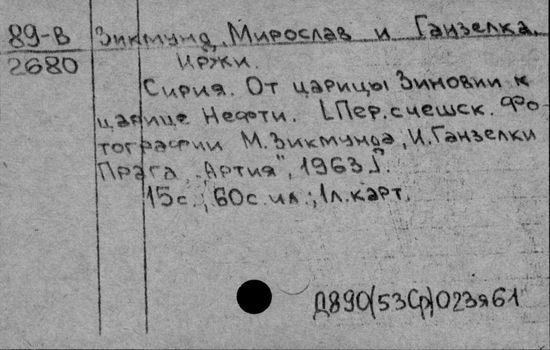 89-В Зикмунд, Мирослав и Ганзелка,
2680 Иржи.
Сирия. От царицы Зиновии к
царице Нефти. [Пер. с чешск. Фо-
тографии М. Зикмунда, И. Ганзелки
Прага, „Артия", 1963].
15с.; 60с. ил.; 1л. карт.
Д890(53Ср)023я61